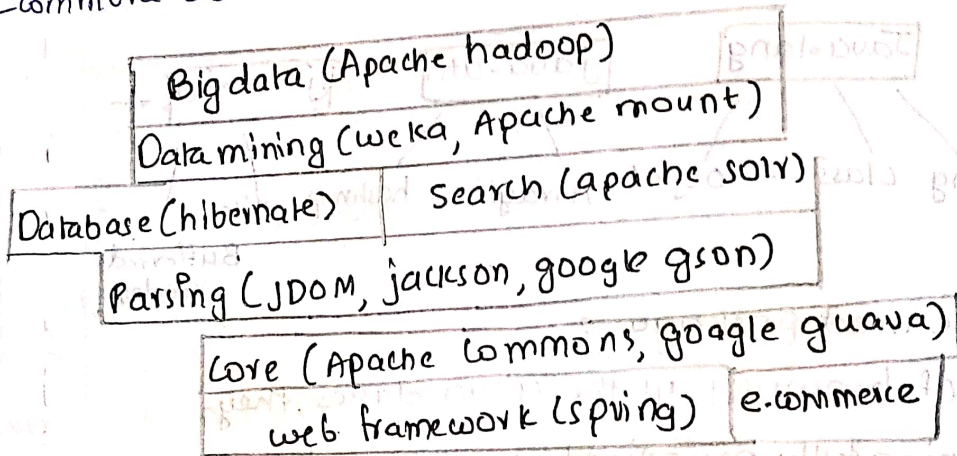 Big data (Apache hadoop)
Data mining (weka, Apache mount)
Database (hibernate) Search (apache solr)
Parsing (JDOM, jackson, google gson)
Core (Apache Commons, google guava)
web framework (spring) e.commerce